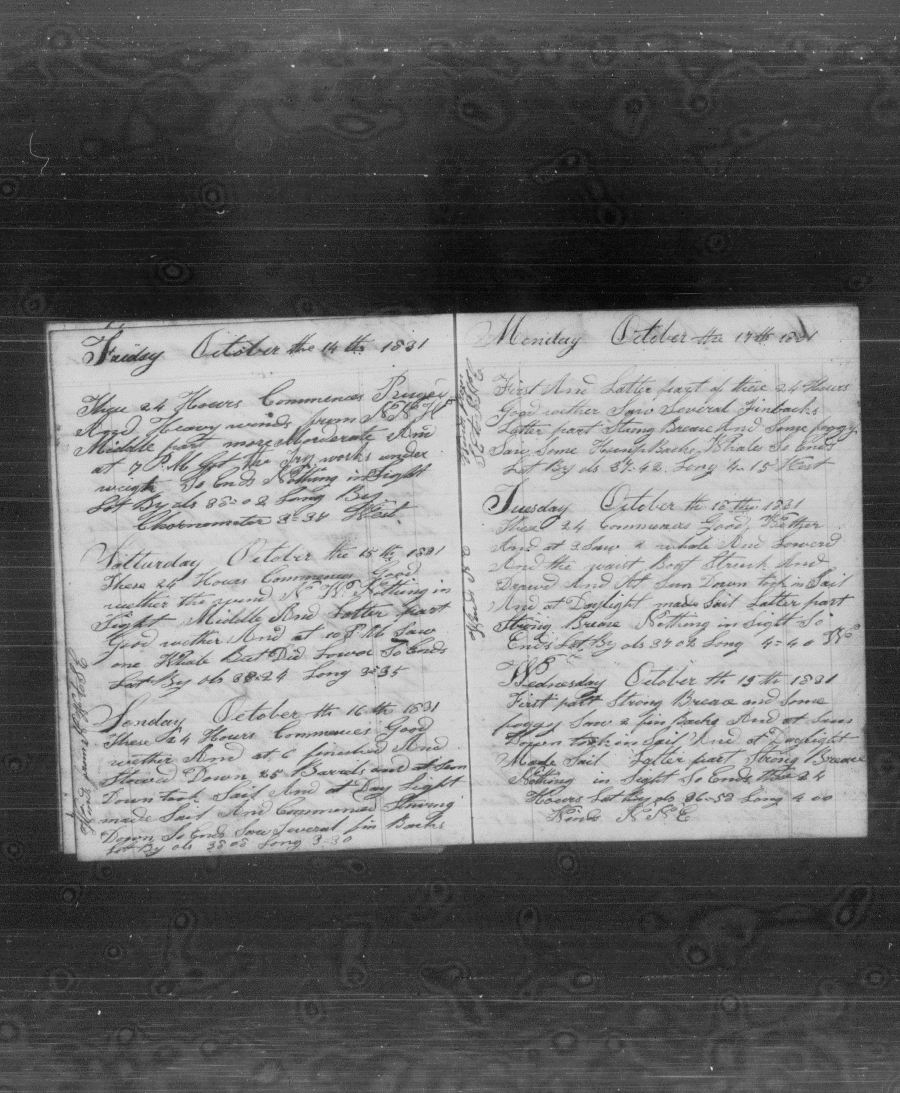 Friday October the 14 th 1831
These 24 Hours Commences
And Heavy winds from N N W
Middle part more Moderate And
at 7 P M Got the Try works under
weigh So Ends Nothing in Sight
Lat By obs 38=02 Long By
Chornometer 3=34 West
Satturday October the 15 th 1831
These 24 Hours Commences Good
wether the wind N W Nothing in
Sight Middle And Latter part
Good wether And at 10 P M Saw
one Whale But Did Lower So Ends
Lat By obs 38=24 Long 3=35
Sonday October th 16 th 1831
These 24 Hours Commences Good
wether And at 6 finished And
Stowed Down 25 Barrels and at Sun
Down took Sail And at Day Light
made Sail And Commenced Stowing
Down So Ends Saw Several fin Backs
Lat By obs 38 05 Long 3=30
Wind from
Monday October the 17 th 1831
First And Latter part of these 24 Hours
Good wether Saw Several Finbacks
Latter part Stung Breaze And Some foggy
Saw Some Humpbacks Whales So Ends
Lat By obs 37-42 Long 4=15 West
Tuesday October th 18 th 1831
These 24 Commences Good Wether
And at 3 Saw a whale And Lowerd
And the waist Boat Struck And
Drawd And At Sun Down took in Sail
And at Daylight made Sail Latter part
Strong Breaze Nothing in Sight So
Ends Lat By obs 37 02 Long 4=40 W
Wednesday October th 19 th 1831
First part Strong Breaze and Some
foggy Saw 2 Fin Backs And at Sun
Down took in Sail And at Daylight
Made Sail Latter part Strong Breaze
Nothing in Sight So Ends these 24
Hours Lat By obs 36=52 Long 4 00
Winds N N E